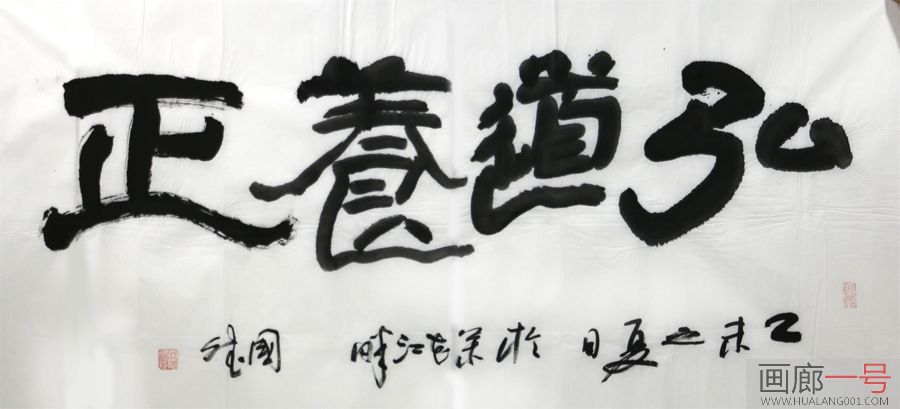 弘道養正
乙未之夏日於江畔 國
画廊一号
WWW.HUALANG001.COM